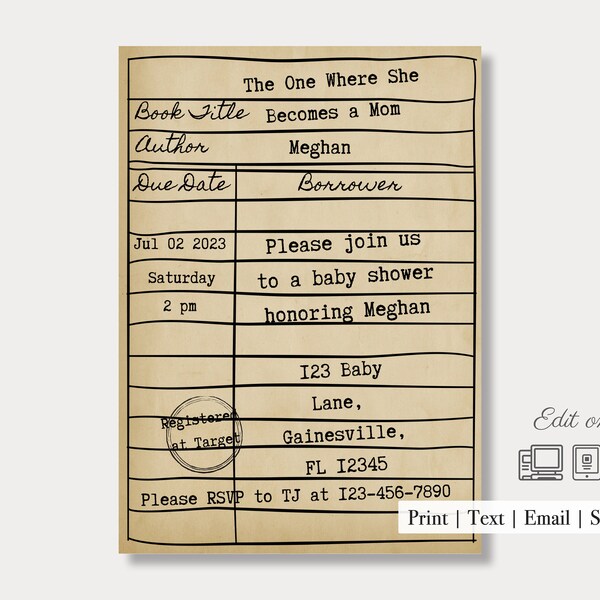 The One Where She
Book Title Becomes a Mom
Author Meghan
Due Date Borrower
Jul 02 2023 Please join us
Saturday to a baby shower
2 pm honoring Meghan
I23 Baby
Lane,
Registered
at Target
Gainesville,
FL I2345
Please RSVP to TJ at I23-456-7890
Edit on
Print | Text | Email | S